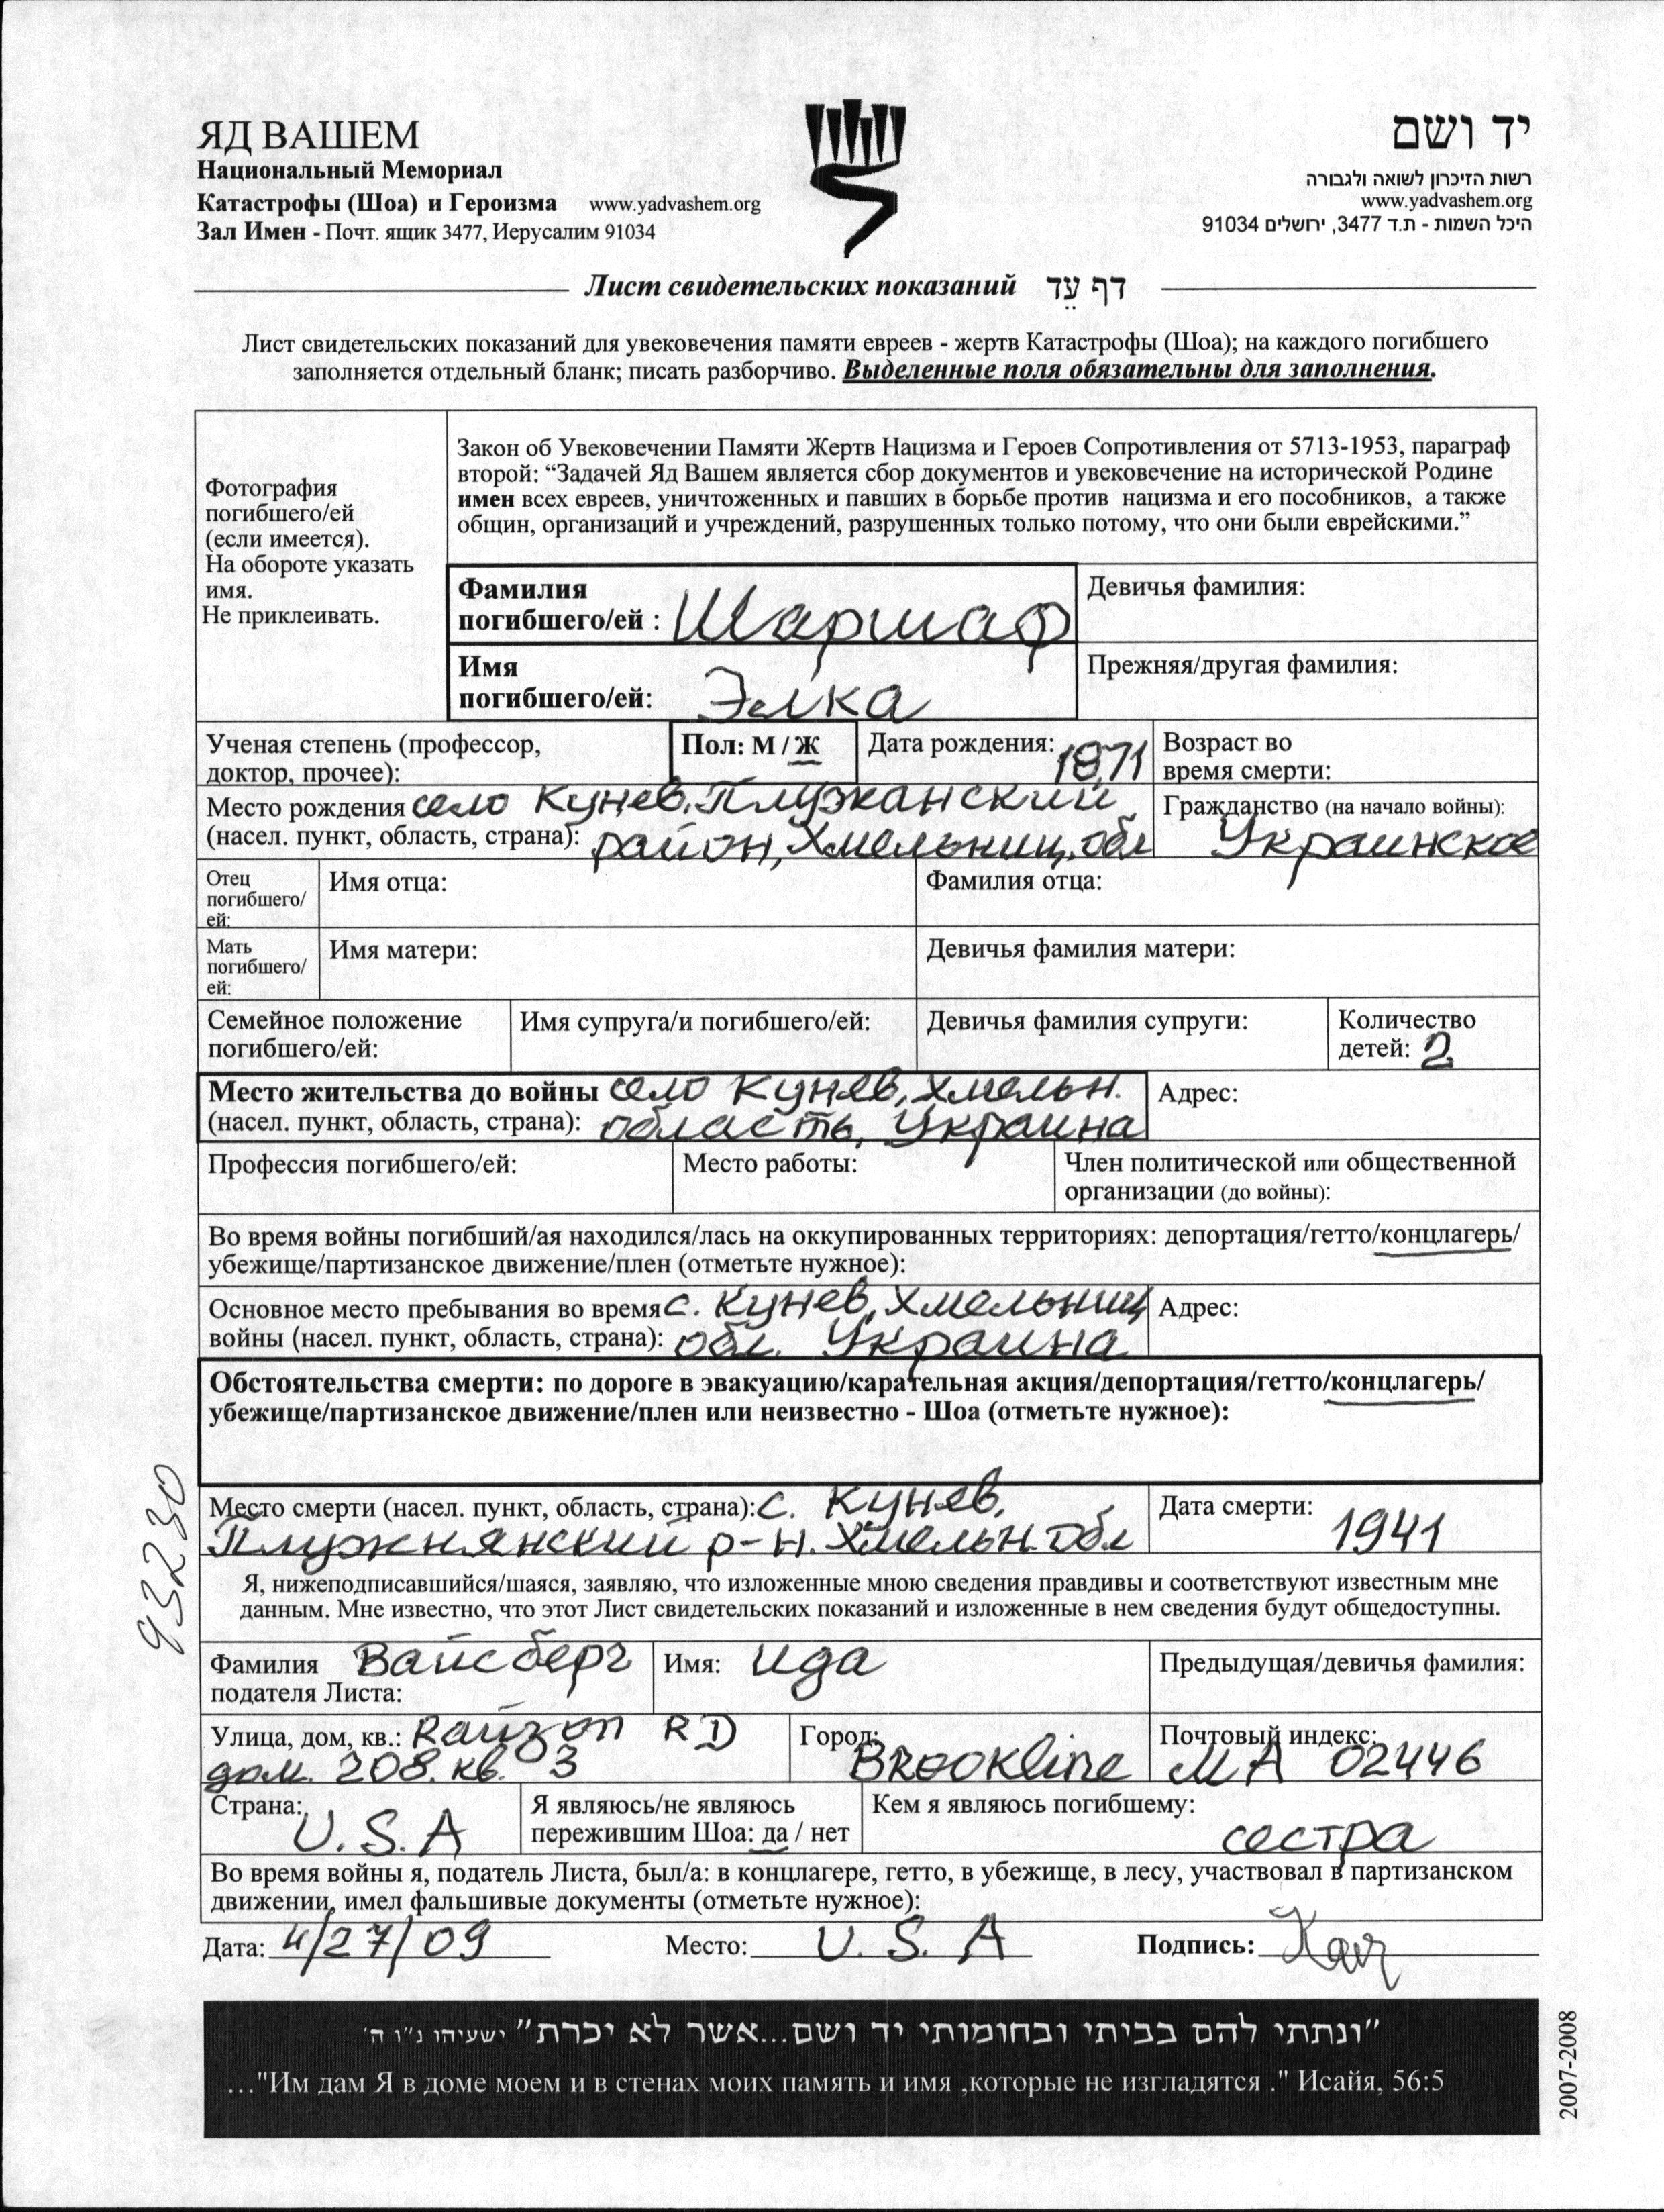 ЯД ВАШЕМ
Национальный Мемориал
Катастрофы (Шоа) и Героизма www.yadvashem.org
Зал Имен - Почт. ящик 3477, Иерусалим 91034
יד ושם
רשות הזיכרון לשואה ולגבורה
www.yadvashem.org
היכל השמות - ת.ד 3477, ירושלים 91034
Лист свидетельских показаний דף עֵד
Лист свидетельских показаний для увековечения памяти евреев - жертв Катастрофы (Шоа); на каждого погибшего
заполняется отдельный бланк; писать разборчиво. Выделенные поля обязательны для заполнения.
Фотография
погибшего/ей
(если имеется).
На обороте указать
имя.
Не приклеивать.
Закон об Увековечении Памяти Жертв Нацизма и Героев Сопротивления от 5713-1953, параграф
второй: “Задачей Яд Вашем является сбор документов и увековечение на исторической Родине
имен всех евреев, уничтоженных и павших в борьбе против нацизма и его пособников, а также
общин, организаций и учреждений, разрушенных только потому, что они были еврейскими.”
Фамилия
погибшего/ей : Шаршаф
Девичья фамилия:
Имя
погибшего/ей: Элка
Прежняя/другая фамилия:
Ученая степень (профессор,
доктор, прочее):
Пол: М / Ж
Дата рождения: 1871
Возраст во
время смерти:
Место рождения село Кунев, Плужканский
(насел. пункт, область, страна): район, Хмельниц. обл
Гражданство (на начало войны):
Украинское
Отец
погибшего/
ей:
Имя отца:
Фамилия отца:
Мать
погибшего/
ей:
Имя матери:
Девичья фамилия матери:
Семейное положение
погибшего/ей:
Имя супруга/и погибшего/ей:
Девичья фамилия супруги:
Количество
детей: 2
Место жительства до войны село Кунев, Хмельн.
(насел. пункт, область, страна): область, Украина
Адрес:
Профессия погибшего/ей:
Место работы:
Член политической или общественной
организации (до войны):
Во время войны погибший/ая находился/лась на оккупированных территориях: депортация/гетто/концлагерь/
убежище/партизанское движение/плен (отметьте нужное):
Основное место пребывания во время с. Кунев, Хмельниц
войны (насел. пункт, область, страна): обл. Украина
Адрес:
Обстоятельства смерти: по дороге в эвакуацию/карательная акция/депортация/гетто/концлагерь/
убежище/партизанское движение/плен или неизвестно - Шоа (отметьте нужное):
93230
Место смерти (насел. пункт, область, страна): с. Кунев,
Плужнянский р-н. Хмельн. обл
Дата смерти:
1941
Я, нижеподписавшийся/шаяся, заявляю, что изложенные мною сведения правдивы и соответствуют известным мне
данным. Мне известно, что этот Лист свидетельских показаний и изложенные в нем сведения будут общедоступны.
Фамилия Вайсберг
подателя Листа:
Имя: Ида
Предыдущая/девичья фамилия:
Улица, дом, кв.: RD
дом. 208. кв. 3
Город:
Brookline
Почтовый индекс:
MA 02446
Страна:
U.S.A
Я являюсь/не являюсь
пережившим Шоа: да / нет
Кем я являюсь погибшему:
сестра
Во время войны я, податель Листа, был/а: в концлагере, гетто, в убежище, в лесу, участвовал в партизанском
движении, имел фальшивые документы (отметьте нужное):
Дата: 4/27/09 Место: U. S. A Подпись:
"ונתתי להם בביתי ובחומותי יד ושם...אשר לא יכרת" ישעיהו נ"ו ה'
..."Им дам Я в доме моем и в стенах моих память и имя ,которые не изгладятся ." Исайя, 56:5
2007-2008